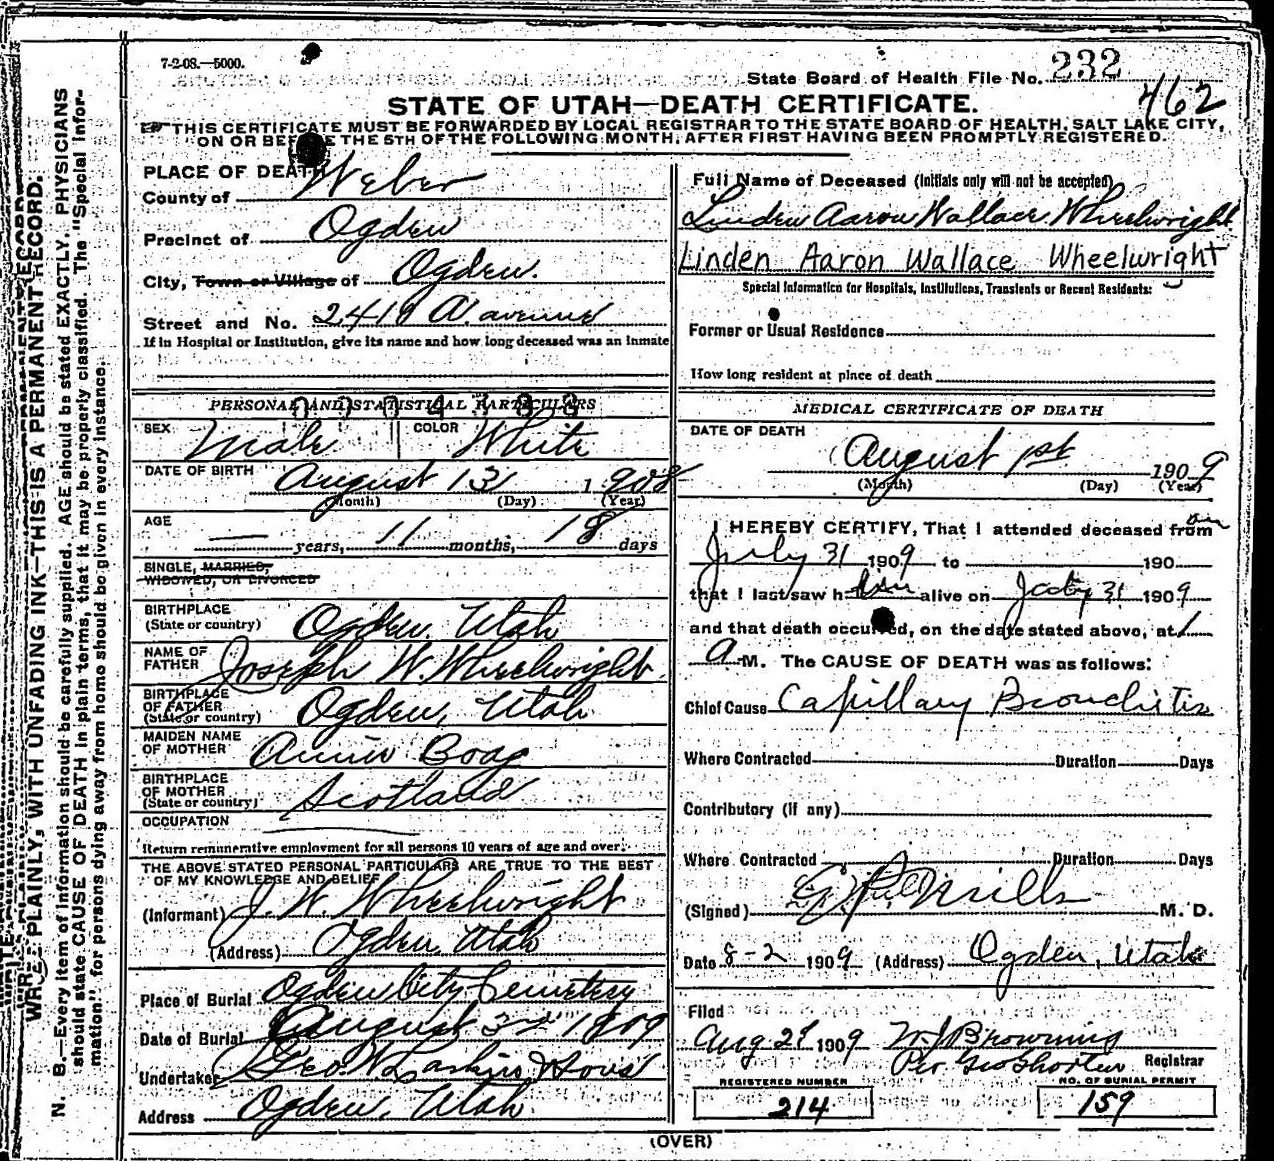 7-2-08.—5000.
State Board of Health File No. 232
462
STATE OF UTAH—DEATH CERTIFICATE.
THIS CERTIFICATE MUST BE FORWARDED BY LOCAL REGISTRAR TO THE STATE BOARD OF HEALTH, SALT LAKE CITY,
ON OR BEFORE THE 5TH OF THE FOLLOWING MONTH, AFTER FIRST HAVING BEEN PROMPTLY REGISTERED.
PLACE OF DEATH
County of Weber
Precinct of Ogden
City, Town or Village of Ogden.
Street and No. 2418 A. avenue
If in Hospital or Institution, give its name and how long deceased was an inmate
PERSONAL AND STATISTICAL PARTICULARS
SEX Male COLOR White
DATE OF BIRTH August 13 1908
(Month) (Day) (Year)
AGE — years, 11 months, 18 days
SINGLE, MARRIED,
WIDOWED, OR DIVORCED
BIRTHPLACE
(State or country) Ogden. Utah
NAME OF
FATHER Joseph W. Wheelwright.
BIRTHPLACE
OF FATHER
(State or country) Ogden, Utah
MAIDEN NAME
OF MOTHER Annie Boag
BIRTHPLACE
OF MOTHER
(State or country) Scotland
OCCUPATION
Return remunerative employment for all persons 10 years of age and over.
THE ABOVE STATED PERSONAL PARTICULARS ARE TRUE TO THE BEST
OF MY KNOWLEDGE AND BELIEF
(Informant) J. W. Wheelwright
(Address) Ogden, Utah
Place of Burial Ogden City Cemetery
Date of Burial August 3rd 1909
Undertaker Geo. W. Larkin & Sons
Address Ogden, Utah
Full Name of Deceased (Initials only will not be accepted)
Linden Aaron Wallace Wheelwright
Linden Aaron Wallace Wheelwright
Special Information for Hospitals, Institutions, Transients or Recent Residents:
Former or Usual Residence
How long resident at place of death
MEDICAL CERTIFICATE OF DEATH
DATE OF DEATH
August 1st 1909
(Month) (Day) (Year)
I HEREBY CERTIFY, That I attended deceased from on
July 31 1909 to 190
that I last saw him alive on July 31 1909
and that death occurred, on the date stated above, at 1
A M. The CAUSE OF DEATH was as follows:
Chief Cause Capillary Bronchitis
Where Contracted Duration Days
Contributory (if any)
Where Contracted Duration Days
(Signed) Mills M. D.
Date 8-2 1909 (Address) Ogden, Utah
Filed
Aug 2d 1909 W J Browning
Per Geo Shorten Registrar
REGISTERED NUMBER
214
NO. OF BURIAL PERMIT
159
(OVER)
WRITE PLAINLY, WITH UNFADING INK—THIS IS A PERMANENT RECORD.
N. B.—Every item of information should be carefully supplied. AGE should be stated EXACTLY. PHYSICIANS
should state CAUSE OF DEATH in plain terms, that it may be properly classified. The "Special Infor-
mation" for persons dying away from home should be given in every instance.